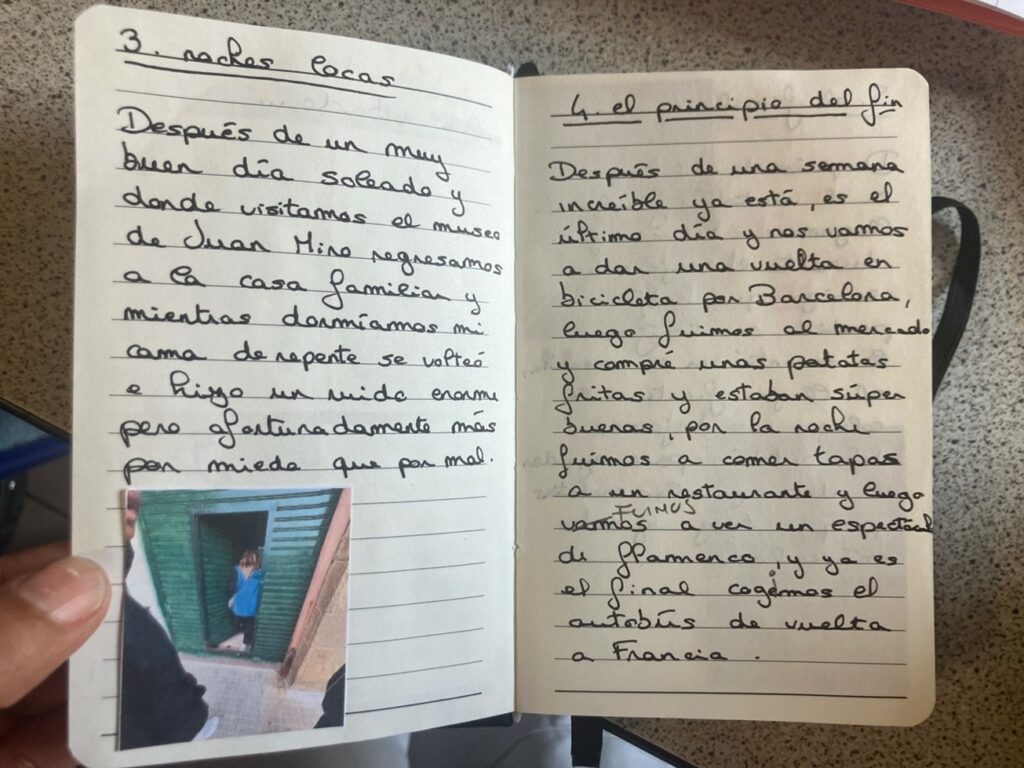 3. noches locas
Después de un muy
buen día soleado y
donde visitamos el museo
de Juan Miro regresamos
a la casa familiar y
mientras dormíamos mi
cama de repente se volteó
e hizo un ruido enorme
pero afortunadamente más
por miedo que por mal.
4. el principio del fin
Después de una semana
increíble ya está, es el
último día y nos vamos
a dar una vuelta en
bicicleta por Barcelona,
luego fuimos al mercado
y compré unas patatas
fritas y estaban súper
buenas, por la noche
fuimos a comer tapas
a un restaurante y luego
FUIMOS
vamos a ver un espectacul
de flamenco, y ya es
el final cogémos el
autobús de vuelta
a Francia.